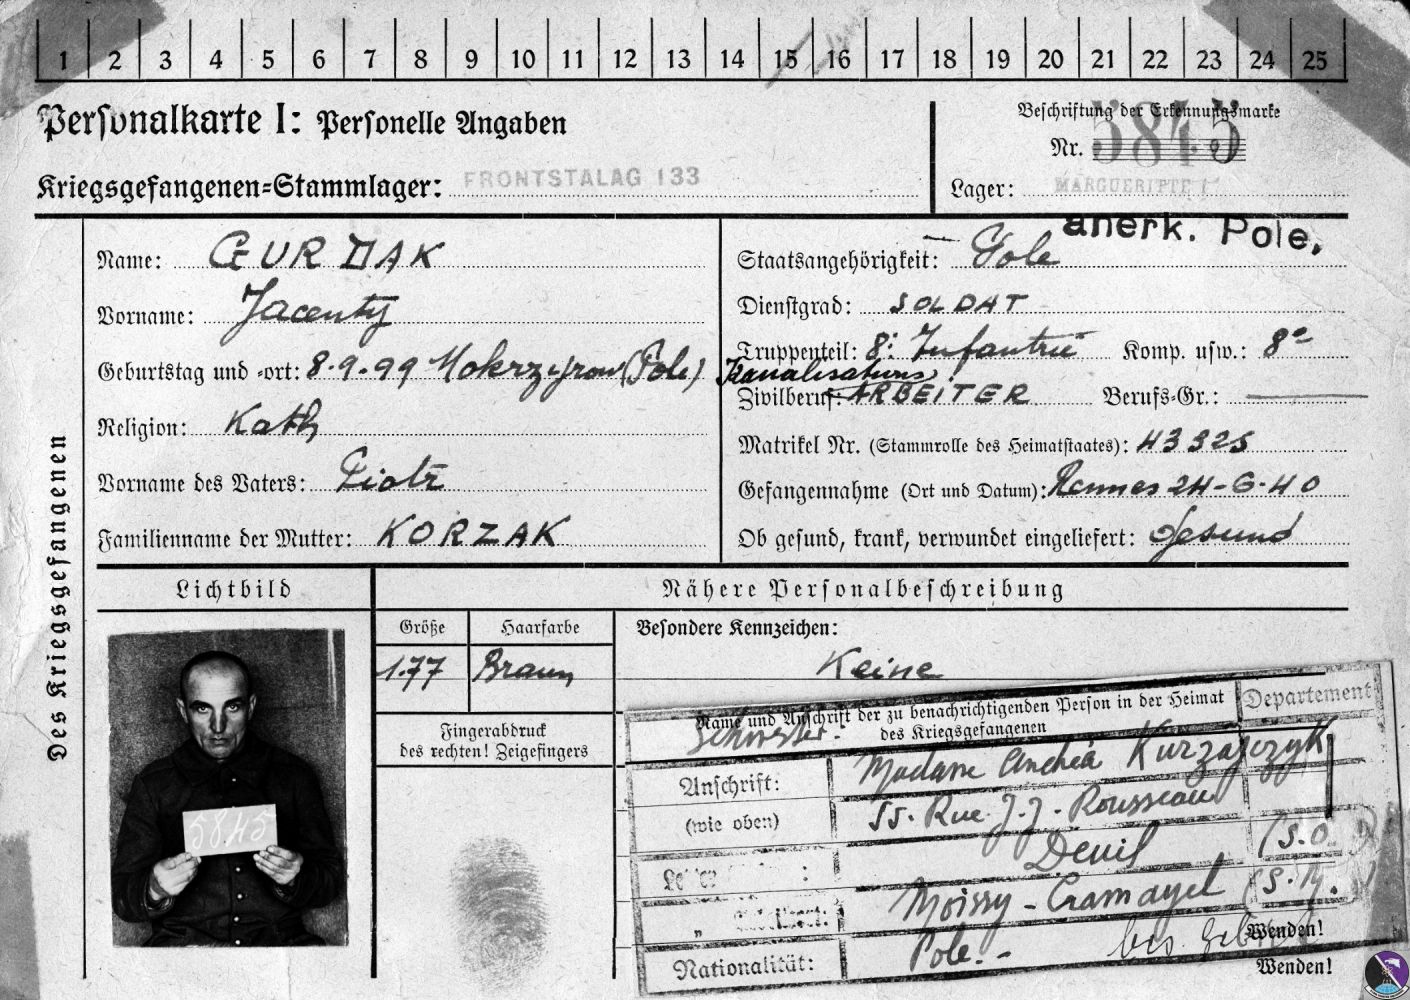 1 2 3 4 5 6 7 8 9 10 11 12 13 14 15 16 17 18 19 20 21 22 23 24 25
Personalkarte I: Personelle Angaben
Beschriftung der Erkennungsmarke
Nr. 5845
Kriegsgefangenen-Stammlager: FRONTSTALAG 133
Lager:
anerk. Pole.
Des Kriegsgefangenen
Name: GURDAK
Vorname: Jacenty
Geburtstag und -ort: 8.9.99 (Pole)
Religion: Kath
Vorname des Vaters: Piotr
Familienname der Mutter: KORZAK
Staatsangehörigkeit: Pole
Dienstgrad: SOLDAT
Truppenteil: 8: Infantrie Komp. usw.: 8e
Kanalisations
Zivilberuf: ARBEITER Berufs-Gr.:
Matrikel Nr. (Stammrolle des Heimatstaates): 43325
Gefangennahme (Ort und Datum): Rennes 24-6-40
Ob gesund, krank, verwundet eingeliefert: Gesund
Lichtbild
5845
Nähere Personalbeschreibung
Größe
1.77
Haarfarbe
Braun
Besondere Kennzeichen:
Keine
Fingerabdruck
des rechten! Zeigefingers
Name und Anschrift der zu benachrichtigenden Person in der Heimat
des Kriegsgefangenen
Departement
Schwester:
Anschrift: Madame
(wie oben) 55. Rue J.J. Rousseau
Deuil (S.O.)
Moissy-Cramayel (S.M.)
Nationalität: Pole.-
bis
Wenden!
Wenden!